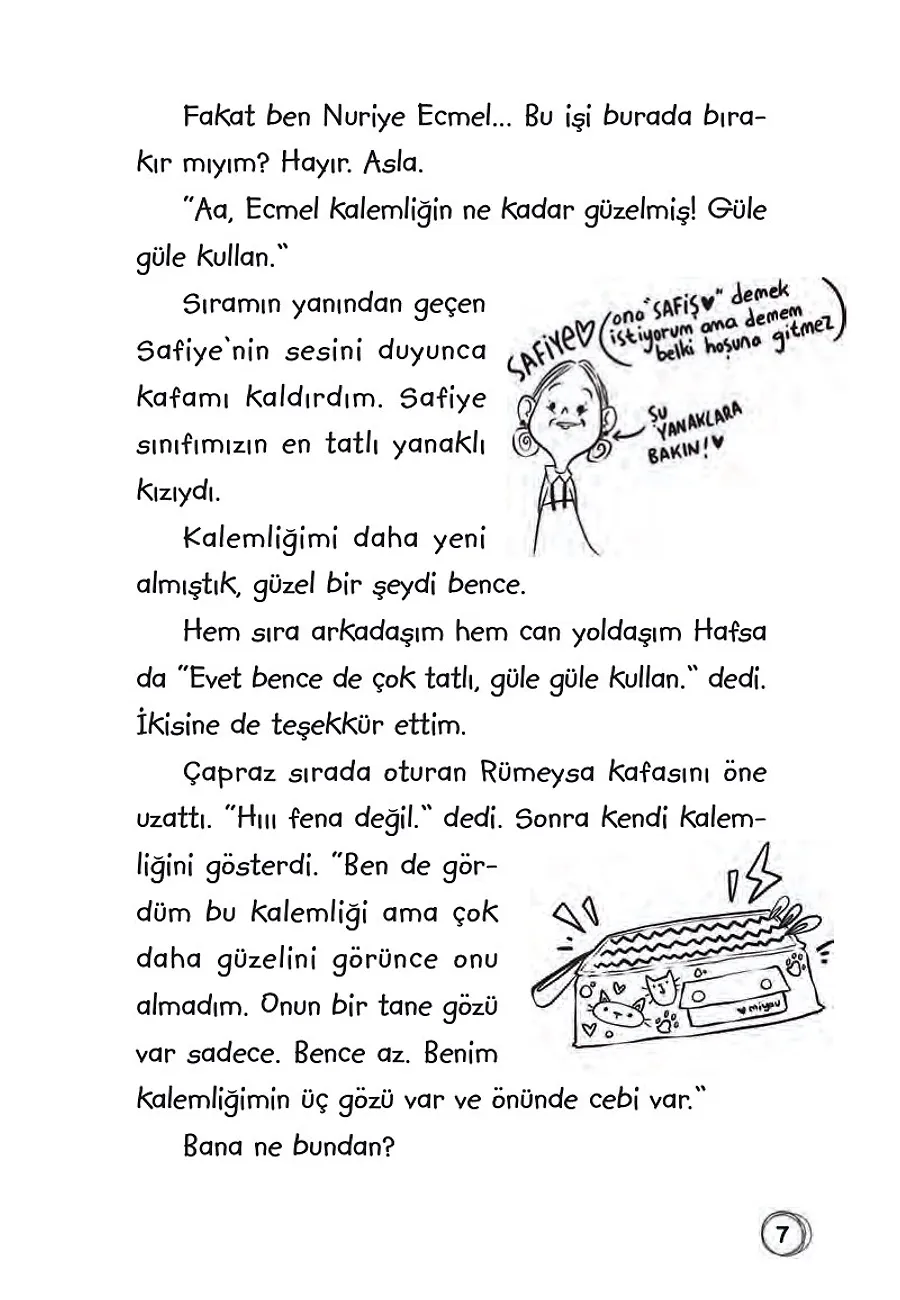 Fakat ben Nuriye Ecmel... Bu işi burada bıra-
kır mıyım? Hayır. Asla.
"Aa, Ecmel kalemliğin ne kadar güzelmiş! Güle
güle kullan."
Sıramın yanından geçen
Safiye'nin sesini duyunca
kafamı kaldırdım. Safiye
sınıfımızın en tatlı yanaklı
kızıydı.
SAFİYE♡
(ona "SAFİŞ♥" demek
istiyorum ama demem
belki hoşuna gitmez)
ŞU
YANAKLARA
BAKIN!♥
Kalemliğimi daha yeni
almıştık, güzel bir şeydi bence.
Hem sıra arkadaşım hem can yoldaşım Hafsa
da "Evet bence de çok tatlı, güle güle kullan." dedi.
İkisine de teşekkür ettim.
Çapraz sırada oturan Rümeysa kafasını öne
uzattı. "Hııı fena değil." dedi. Sonra kendi kalem-
liğini gösterdi. "Ben de gör-
düm bu kalemliği ama çok
daha güzelini görünce onu
almadım. Onun bir tane gözü
var sadece. Bence az. Benim
kalemliğimin üç gözü var ve önünde cebi var."
♥miyav
Bana ne bundan?
7